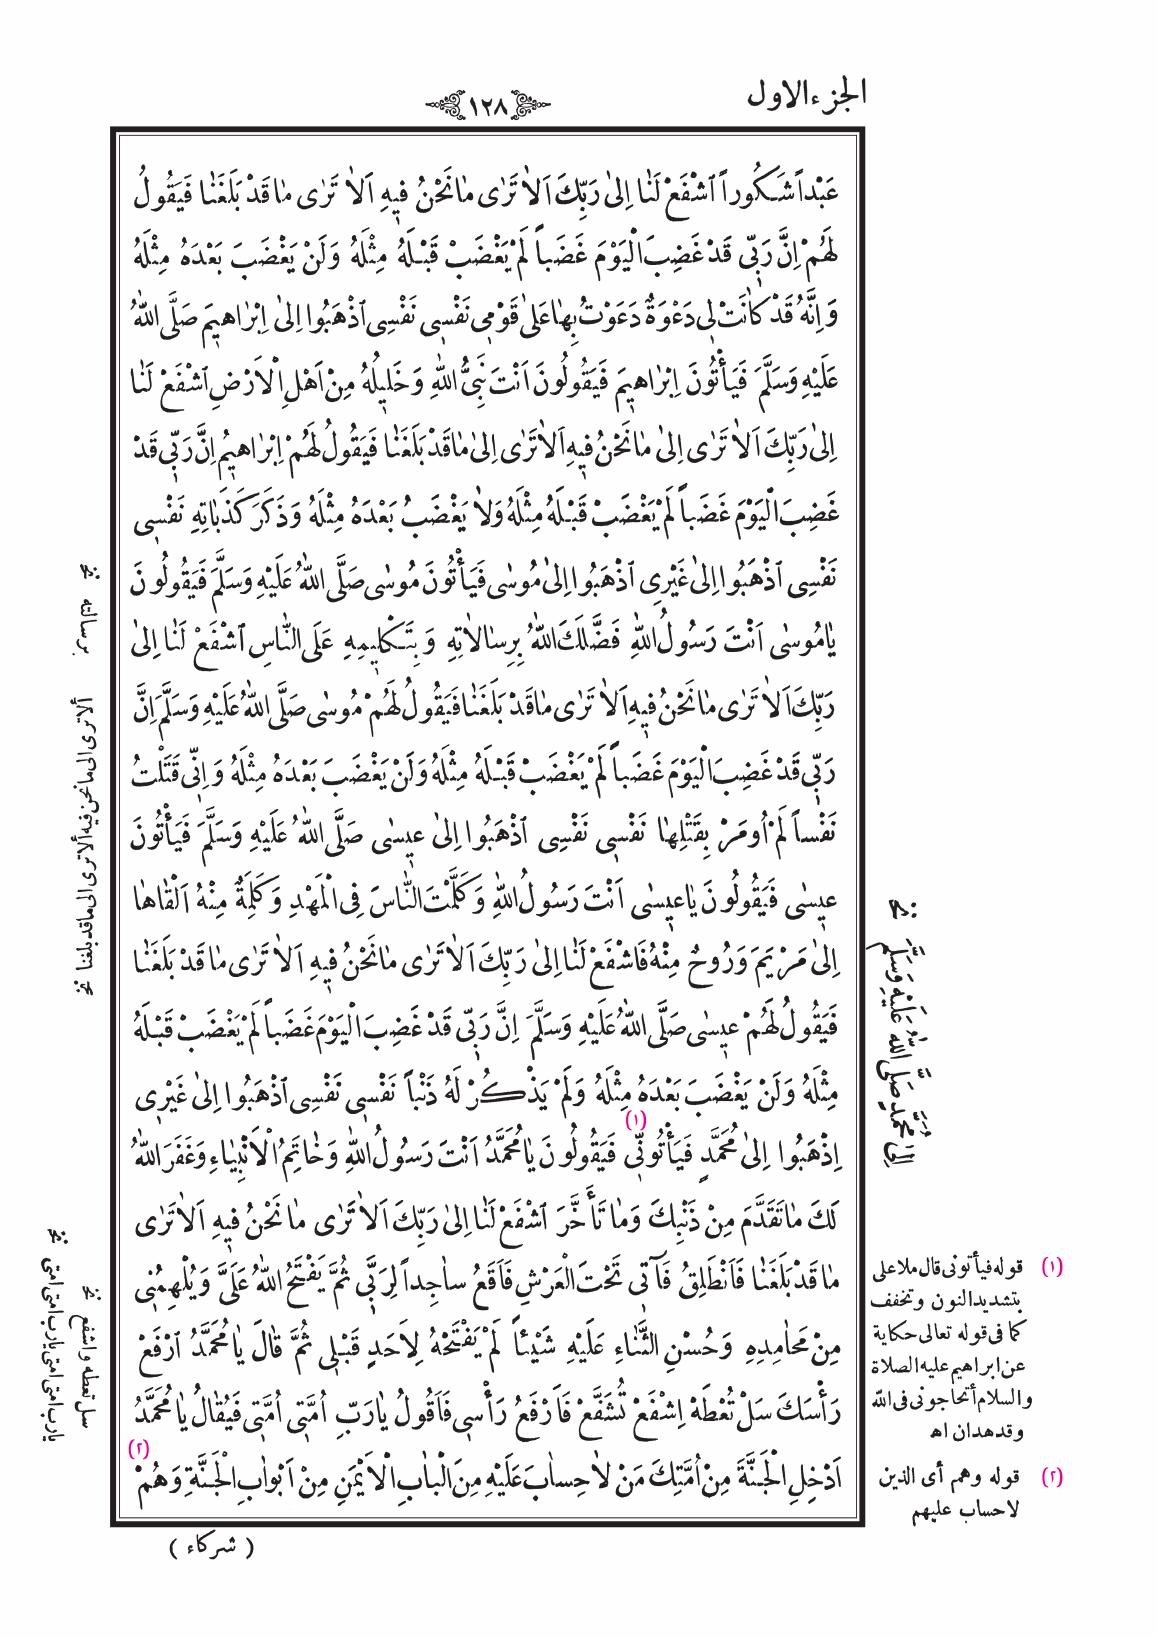 الجزء الاول
١٢٨
عَبْداً شَكُوراً اَشْفَعْ لَنَا اِلىٰ رَبِّكَ اَلاٰ تَرٰى مٰا نَحْنُ فِيهِ اَلاٰ تَرٰى مٰا قَدْ بَلَغَنٰا فَيَقُولُ
لَهُمْ اِنَّ رَبِّى قَدْ غَضِبَ الْيَوْمَ غَضَباً لَمْ يَغْضَبْ قَبْلَهُ مِثْلَهُ وَلَنْ يَغْضَبَ بَعْدَهُ مِثْلَهُ
وَاِنَّهُ قَدْ كٰانَتْ لِى دَعْوَةٌ دَعَوْتُ بِهٰا عَلىٰ قَوْمِى نَفْسِى نَفْسِى اَذْهَبُوا اِلىٰ اِبْرٰاهِيمَ صَلَّى اللهُ
عَلَيْهِ وَسَلَّمَ فَيَأْتُونَ اِبْرٰاهِيمَ فَيَقُولُونَ اَنْتَ نَبِىُّ اللهِ وَخَلِيلُهُ مِنْ اَهْلِ الْاَرْضِ اَشْفَعْ لَنٰا
اِلىٰ رَبِّكَ اَلاٰ تَرٰى اِلىٰ مٰا نَحْنُ فِيهِ اَلاٰ تَرٰى اِلىٰ مٰا قَدْ بَلَغَنٰا فَيَقُولُ لَهُمْ اِبْرٰاهِيمُ اِنَّ رَبِّى قَدْ
غَضِبَ الْيَوْمَ غَضَباً لَمْ يَغْضَبْ قَبْلَهُ مِثْلَهُ وَلاٰ يَغْضَبُ بَعْدَهُ مِثْلَهُ وَذَكَرَ كَذَبٰاتِهِ نَفْسِى
نَفْسِى اَذْهَبُوا اِلىٰ غَيْرِى اَذْهَبُوا اِلىٰ مُوسٰى فَيَأْتُونَ مُوسٰى صَلَّى اللهُ عَلَيْهِ وَسَلَّمَ فَيَقُولُونَ
يٰا مُوسٰى اَنْتَ رَسُولُ اللهِ فَضَّلَكَ اللهُ بِرِسٰالاٰتِهِ وَبِتَكْلِيمِهِ عَلَى النّٰاسِ اَشْفَعْ لَنٰا اِلىٰ
رَبِّكَ اَلاٰ تَرٰى مٰا نَحْنُ فِيهِ اَلاٰ تَرٰى مٰا قَدْ بَلَغَنٰا فَيَقُولُ لَهُمْ مُوسٰى صَلَّى اللهُ عَلَيْهِ وَسَلَّمَ اِنَّ
رَبِّى قَدْ غَضِبَ الْيَوْمَ غَضَباً لَمْ يَغْضَبْ قَبْلَهُ مِثْلَهُ وَلَنْ يَغْضَبَ بَعْدَهُ مِثْلَهُ وَاِنِّى قَتَلْتُ
نَفْساً لَمْ اُومَرْ بِقَتْلِهٰا نَفْسِى نَفْسِى اَذْهَبُوا اِلىٰ عِيسٰى صَلَّى اللهُ عَلَيْهِ وَسَلَّمَ فَيَأْتُونَ
عِيسٰى فَيَقُولُونَ يٰا عِيسٰى اَنْتَ رَسُولُ اللهِ وَكَلَّمْتَ النّٰاسَ فِى الْمَهْدِ وَكَلِمَةٌ مِنْهُ اَلْقٰاهٰا
اِلىٰ مَرْيَمَ وَرُوحٌ مِنْهُ فَاشْفَعْ لَنٰا اِلىٰ رَبِّكَ اَلاٰ تَرٰى مٰا نَحْنُ فِيهِ اَلاٰ تَرٰى مٰا قَدْ بَلَغَنٰا
فَيَقُولُ لَهُمْ عِيسٰى صَلَّى اللهُ عَلَيْهِ وَسَلَّمَ اِنَّ رَبِّى قَدْ غَضِبَ الْيَوْمَ غَضَباً لَمْ يَغْضَبْ قَبْلَهُ
مِثْلَهُ وَلَنْ يَغْضَبَ بَعْدَهُ مِثْلَهُ وَلَمْ يَذْكُرْ لَهُ ذَنْباً نَفْسِى نَفْسِى اَذْهَبُوا اِلىٰ غَيْرِى
اِذْهَبُوا اِلىٰ مُحَمَّدٍ فَيَأْتُونِّى (١) فَيَقُولُونَ يٰا مُحَمَّدُ اَنْتَ رَسُولُ اللهِ وَخٰاتِمُ الْاَنْبِيٰاءِ وَغَفَرَ اللهُ
لَكَ مٰا تَقَدَّمَ مِنْ ذَنْبِكَ وَمٰا تَأَخَّرَ اَشْفَعْ لَنٰا اِلىٰ رَبِّكَ اَلاٰ تَرٰى مٰا نَحْنُ فِيهِ اَلاٰ تَرٰى
مٰا قَدْ بَلَغَنٰا فَاَنْطَلِقُ فَآتِى تَحْتَ الْعَرْشِ فَاَقَعُ سٰاجِداً لِرَبِّى ثُمَّ يَفْتَحُ اللهُ عَلَىَّ وَيُلْهِمُنِى
مِنْ مَحٰامِدِهِ وَحُسْنِ الثَّنٰاءِ عَلَيْهِ شَيْئاً لَمْ يَفْتَحْهُ لِاَحَدٍ قَبْلِى ثُمَّ قٰالَ يٰا مُحَمَّدُ اَرْفَعْ
رَأْسَكَ سَلْ تُعْطَهْ اِشْفَعْ تُشَفَّعْ فَاَرْفَعُ رَأْسِى فَاَقُولُ يٰا رَبِّ اُمَّتِى اُمَّتِى فَيُقٰالُ يٰا مُحَمَّدُ
اَدْخِلِ الْجَنَّةَ مِنْ اُمَّتِكَ مَنْ لاٰ حِسٰابَ عَلَيْهِ مِنَ الْبٰابِ الْاَيْمَنِ مِنْ اَبْوٰابِ الْجَنَّةِ وَهُمْ (٢)
( شركاء )
برسالته نخ
ألا ترى الى ما نحن فيه ألا ترى الى ما قد بلغنا نخ
سل تعطه واشفع نخ
يارب امتى امتى يارب امتى امتى نخ
اِلىٰ مُحَمَّدٍ صَلَّى اللهُ عَلَيْهِ وَسَلَّمَ نخ
(١) قوله فيأتونى قال ملا على
بتشديد النون وتخفف
كما فى قوله تعالى حكاية
عن ابراهيم عليه الصلاة
والسلام أتحاجونى فى الله
وقد هدان اه
(٢) قوله وهم أى الذين
لا حساب عليهم